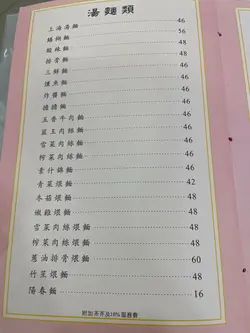 湯麵類
上海湯麵 46
鱔糊麵 56
酸辣麵 48
排骨麵 48
三鮮麵 48
燻魚麵 48
炸醬麵 46
擔擔麵 46
五香牛肉麵 48
韮王肉絲麵 48
雪菜肉絲麵 48
榨菜肉絲麵 48
素什錦麵 46
青菜煨麵 42
冬菇煨麵 48
嫩雞煨麵 48
雪菜肉絲煨麵 48
榨菜肉絲煨麵 48
蔥油排骨煨麵 60
竹笙煨麵 48
陽春麵 16
附加茶芥及10%服務費